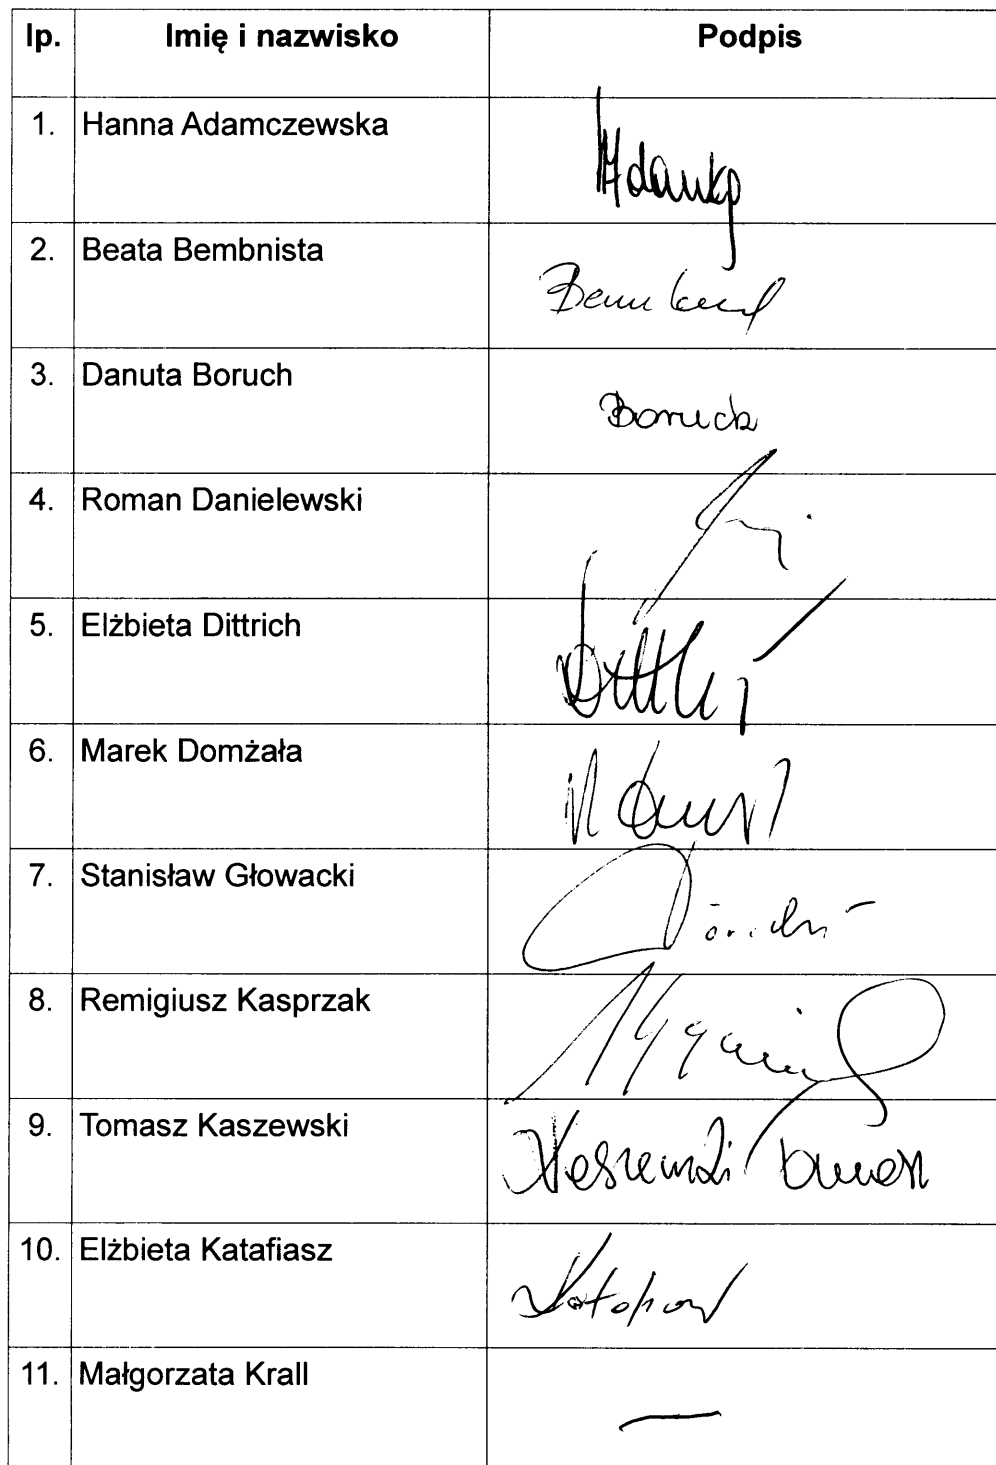 lp. Imię i nazwisko Podpis
1. Hanna Adamczewska
2. Beata Bembnista
3. Danuta Boruch Boruch
4. Roman Danielewski
5. Elżbieta Dittrich
6. Marek Domżała
7. Stanisław Głowacki
8. Remigiusz Kasprzak
9. Tomasz Kaszewski Kaszewski Tomasz
10. Elżbieta Katafiasz
11. Małgorzata Krall —